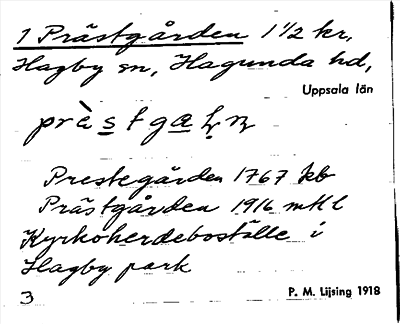 1 Prästgården 1 1/2 kr,
Hagby sn, Hagunda hd,
Uppsala län
Prestegården 1767 kb
Prästgården 1916 mtl
Kyrkoherdeboställe i
Hagby park
3
P. M. Lijsing 1918